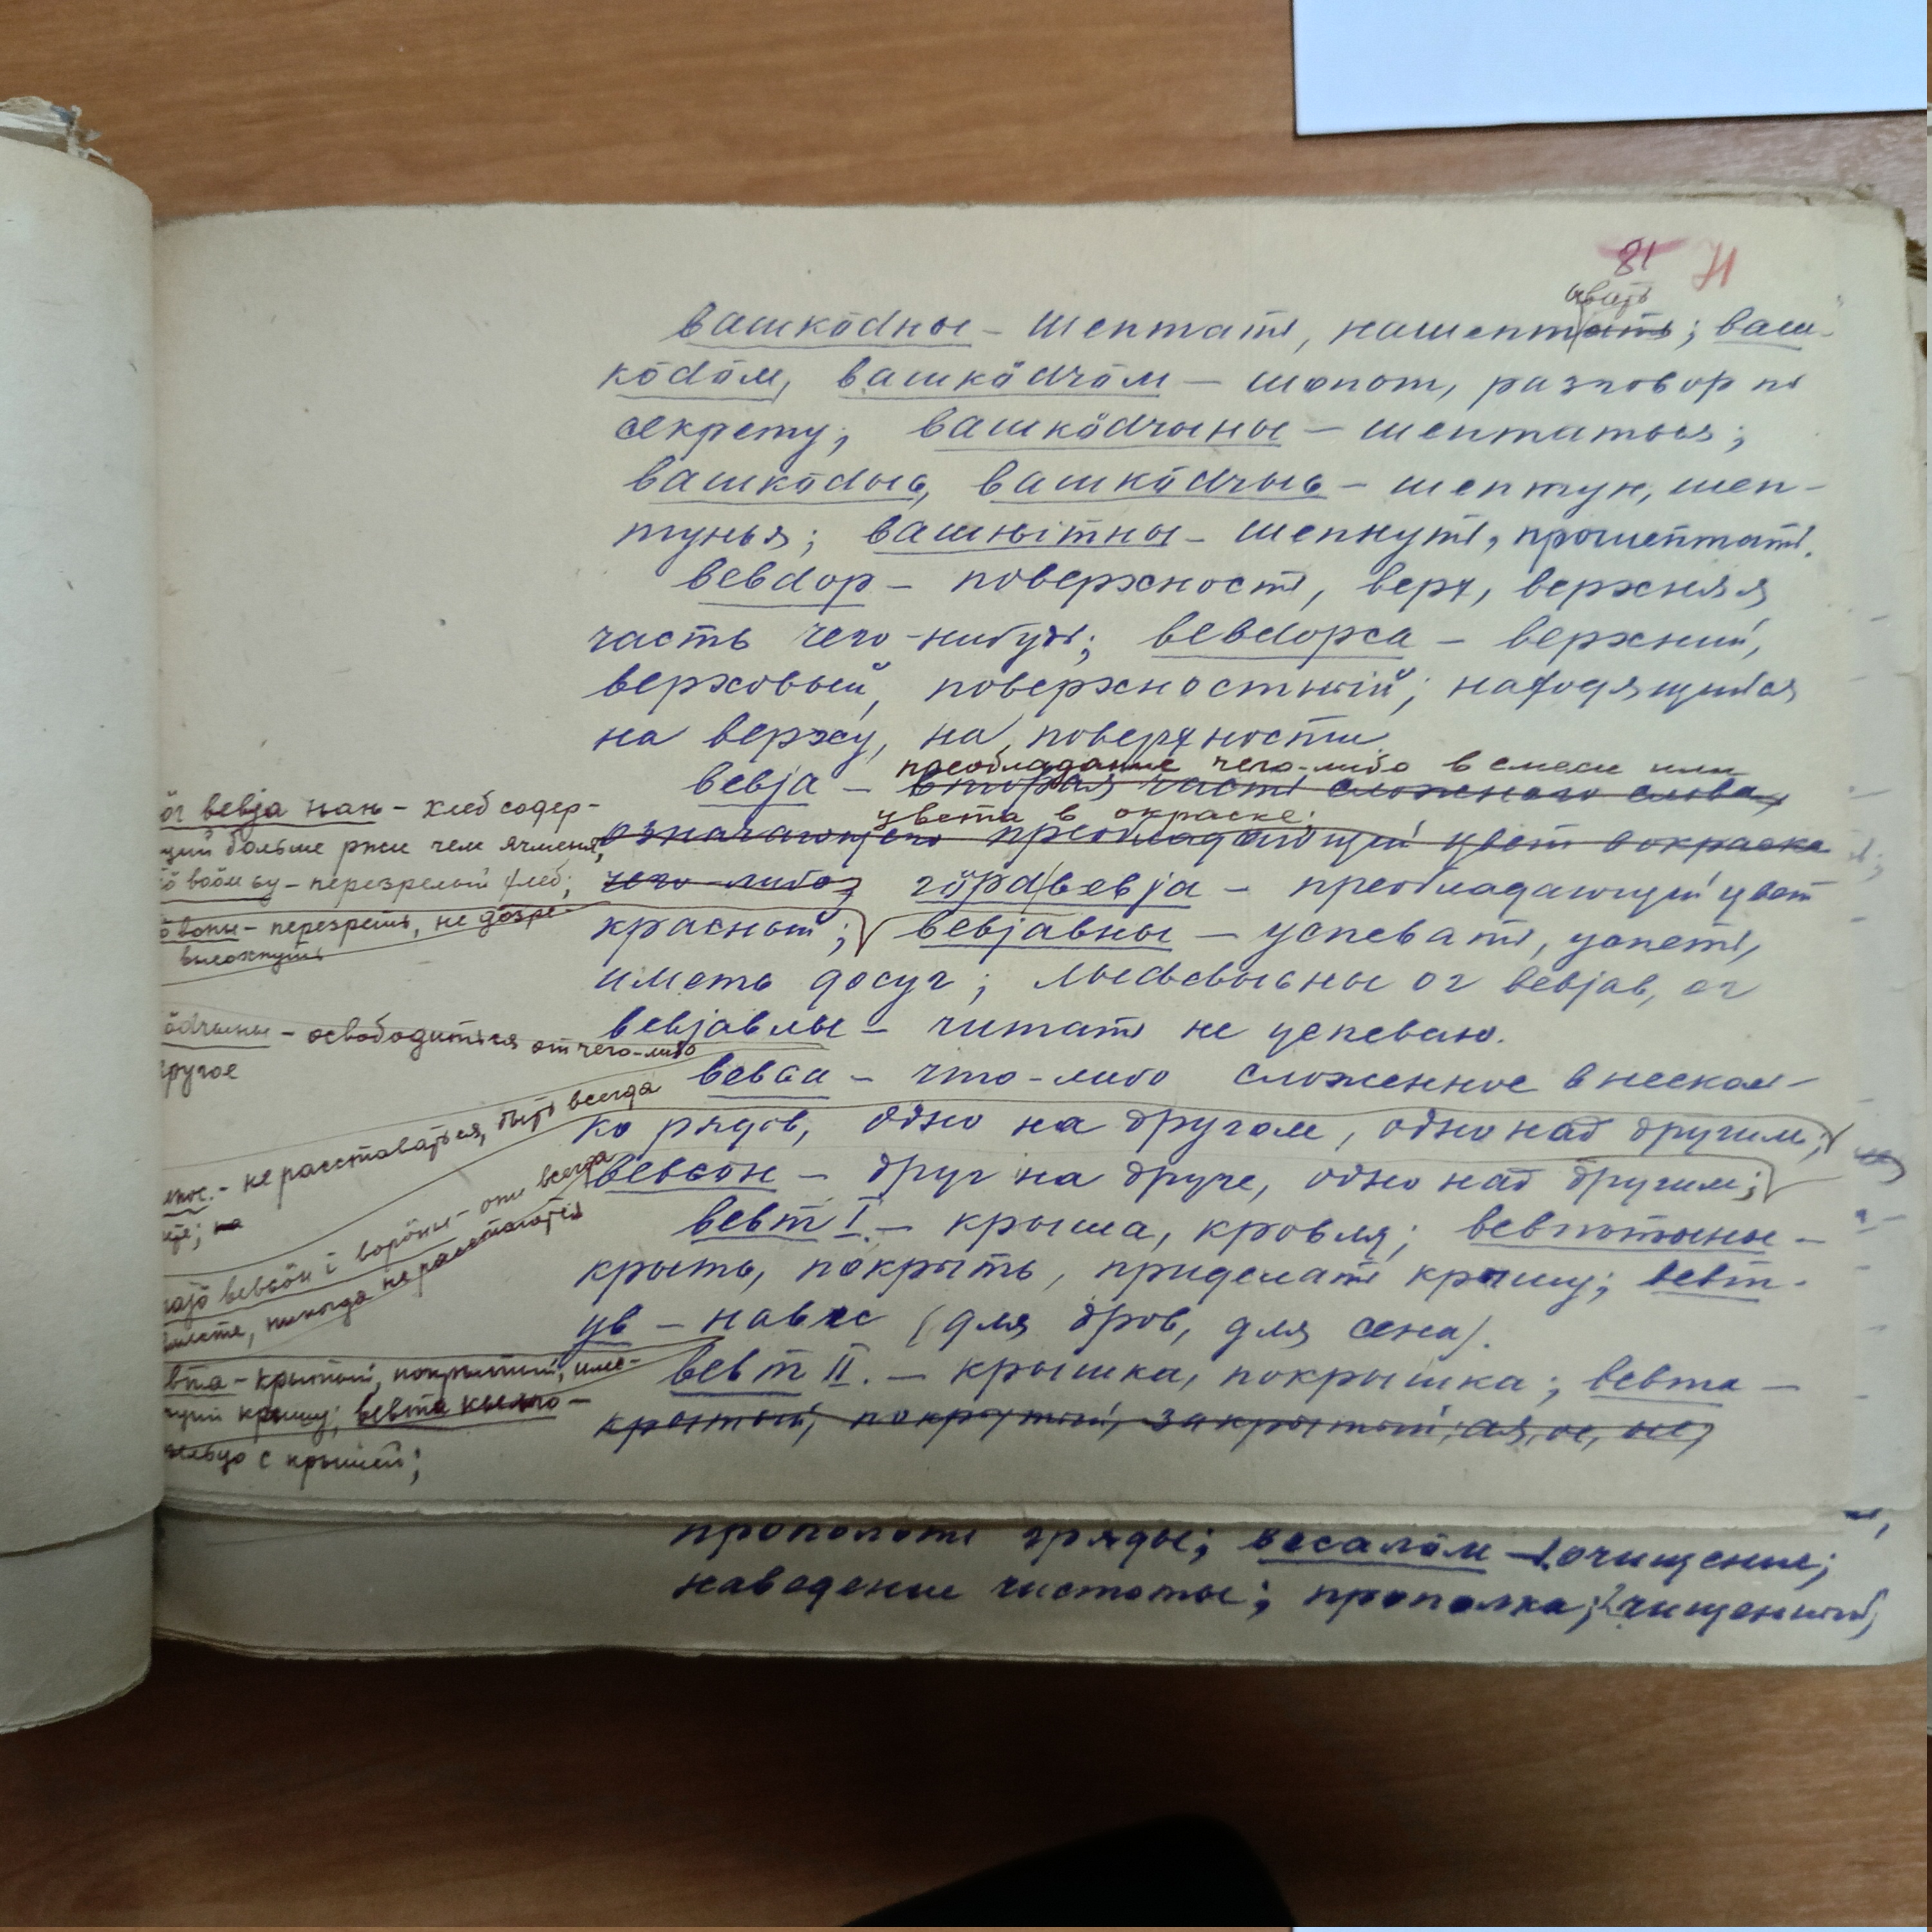 81 71
ывать
вашкӧdны – шептать, нашептать; ваш-
кӧdӧм, вашкӧdчӧм – шопот, разговор по
секрету; вашкӧdчыны – шептаться;
вашкӧdыԍ, вашкӧdчыԍ – шептун, шеп-
тунья; вашԋітны – шепнуть, прошептать.
вевdор – поверхность, верх, верхняя
часть чего-нибудь; вевdорса – верхний,
верховый, поверхностный; находящийся
на верху, на поверхности
преобладание чего-либо в смеси или
вевја – вторая часть сложного слова,
цвета в окраске;
означающего преобладающий цвет в окраске
чего-либо; гӧрd вевја – преобладающий цвет
красный; вевјавны – успевать, успеть,
иметь досуг; ог вевјав, ог
вевјавлы – читать не успеваю.
– что-либо сложенное в несколь-
ко рядов, одно на другом, одно над другим;
вевԍӧн – друг на друге, одно над другим;
вевт I. – крыша, кровля; –
крыть, покрыть, приделать крышу; вевт-
ув – навес (для дров, для сена).
вевт II. – крышка, покрышка; вевта –
крытый, покрытый, закрытый, ая, ое, ые;
ӧг вевја ԋаԋ – хлеб содер-
щий больше ржи чем ячменя,
– перезрелый хлеб;
воны – перезреть, не дозре-
высохнуть
ӧdчыны – освободиться от чего-либо
другое
– не расставаться, быть всегда
вевԍӧн і – они всегда
вместе, никогда не расстаются
вта – крытый, покрытый, име-
щий крышу; вевта кыԉчӧ –
крыльцо с крышей;
прополоть гряды; весалӧм – очищение;
наведение чистоты; прополка; чищенный,